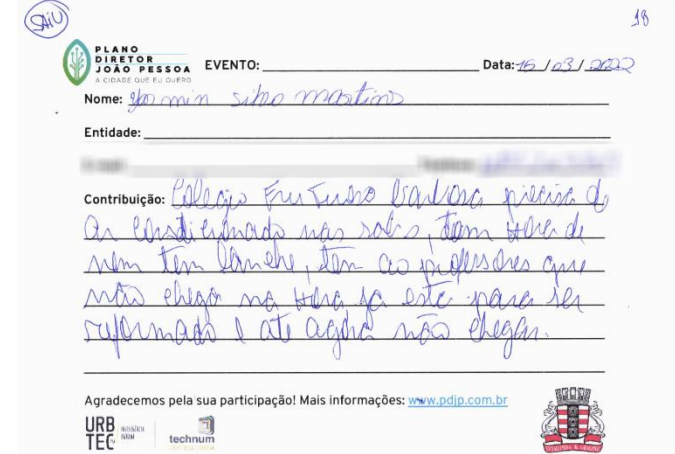 SAIU
18
PLANO
DIRETOR
JOÃO PESSOA
A CIDADE QUE EU QUERO
EVENTO:
Data: 15/03/2022
Nome: silva martins
Entidade:
Contribuição: Colegio Frutuoso Barbosa precisa de
ar condicionado nas salas, tem Hora de
nem tem lanche, tem as professores que
não chega na Hora ja esta para ser
reformado e até agora não chegar.
Agradecemos pela sua participação! Mais informações: www.pdjp.com.br
URB
TEC
technum